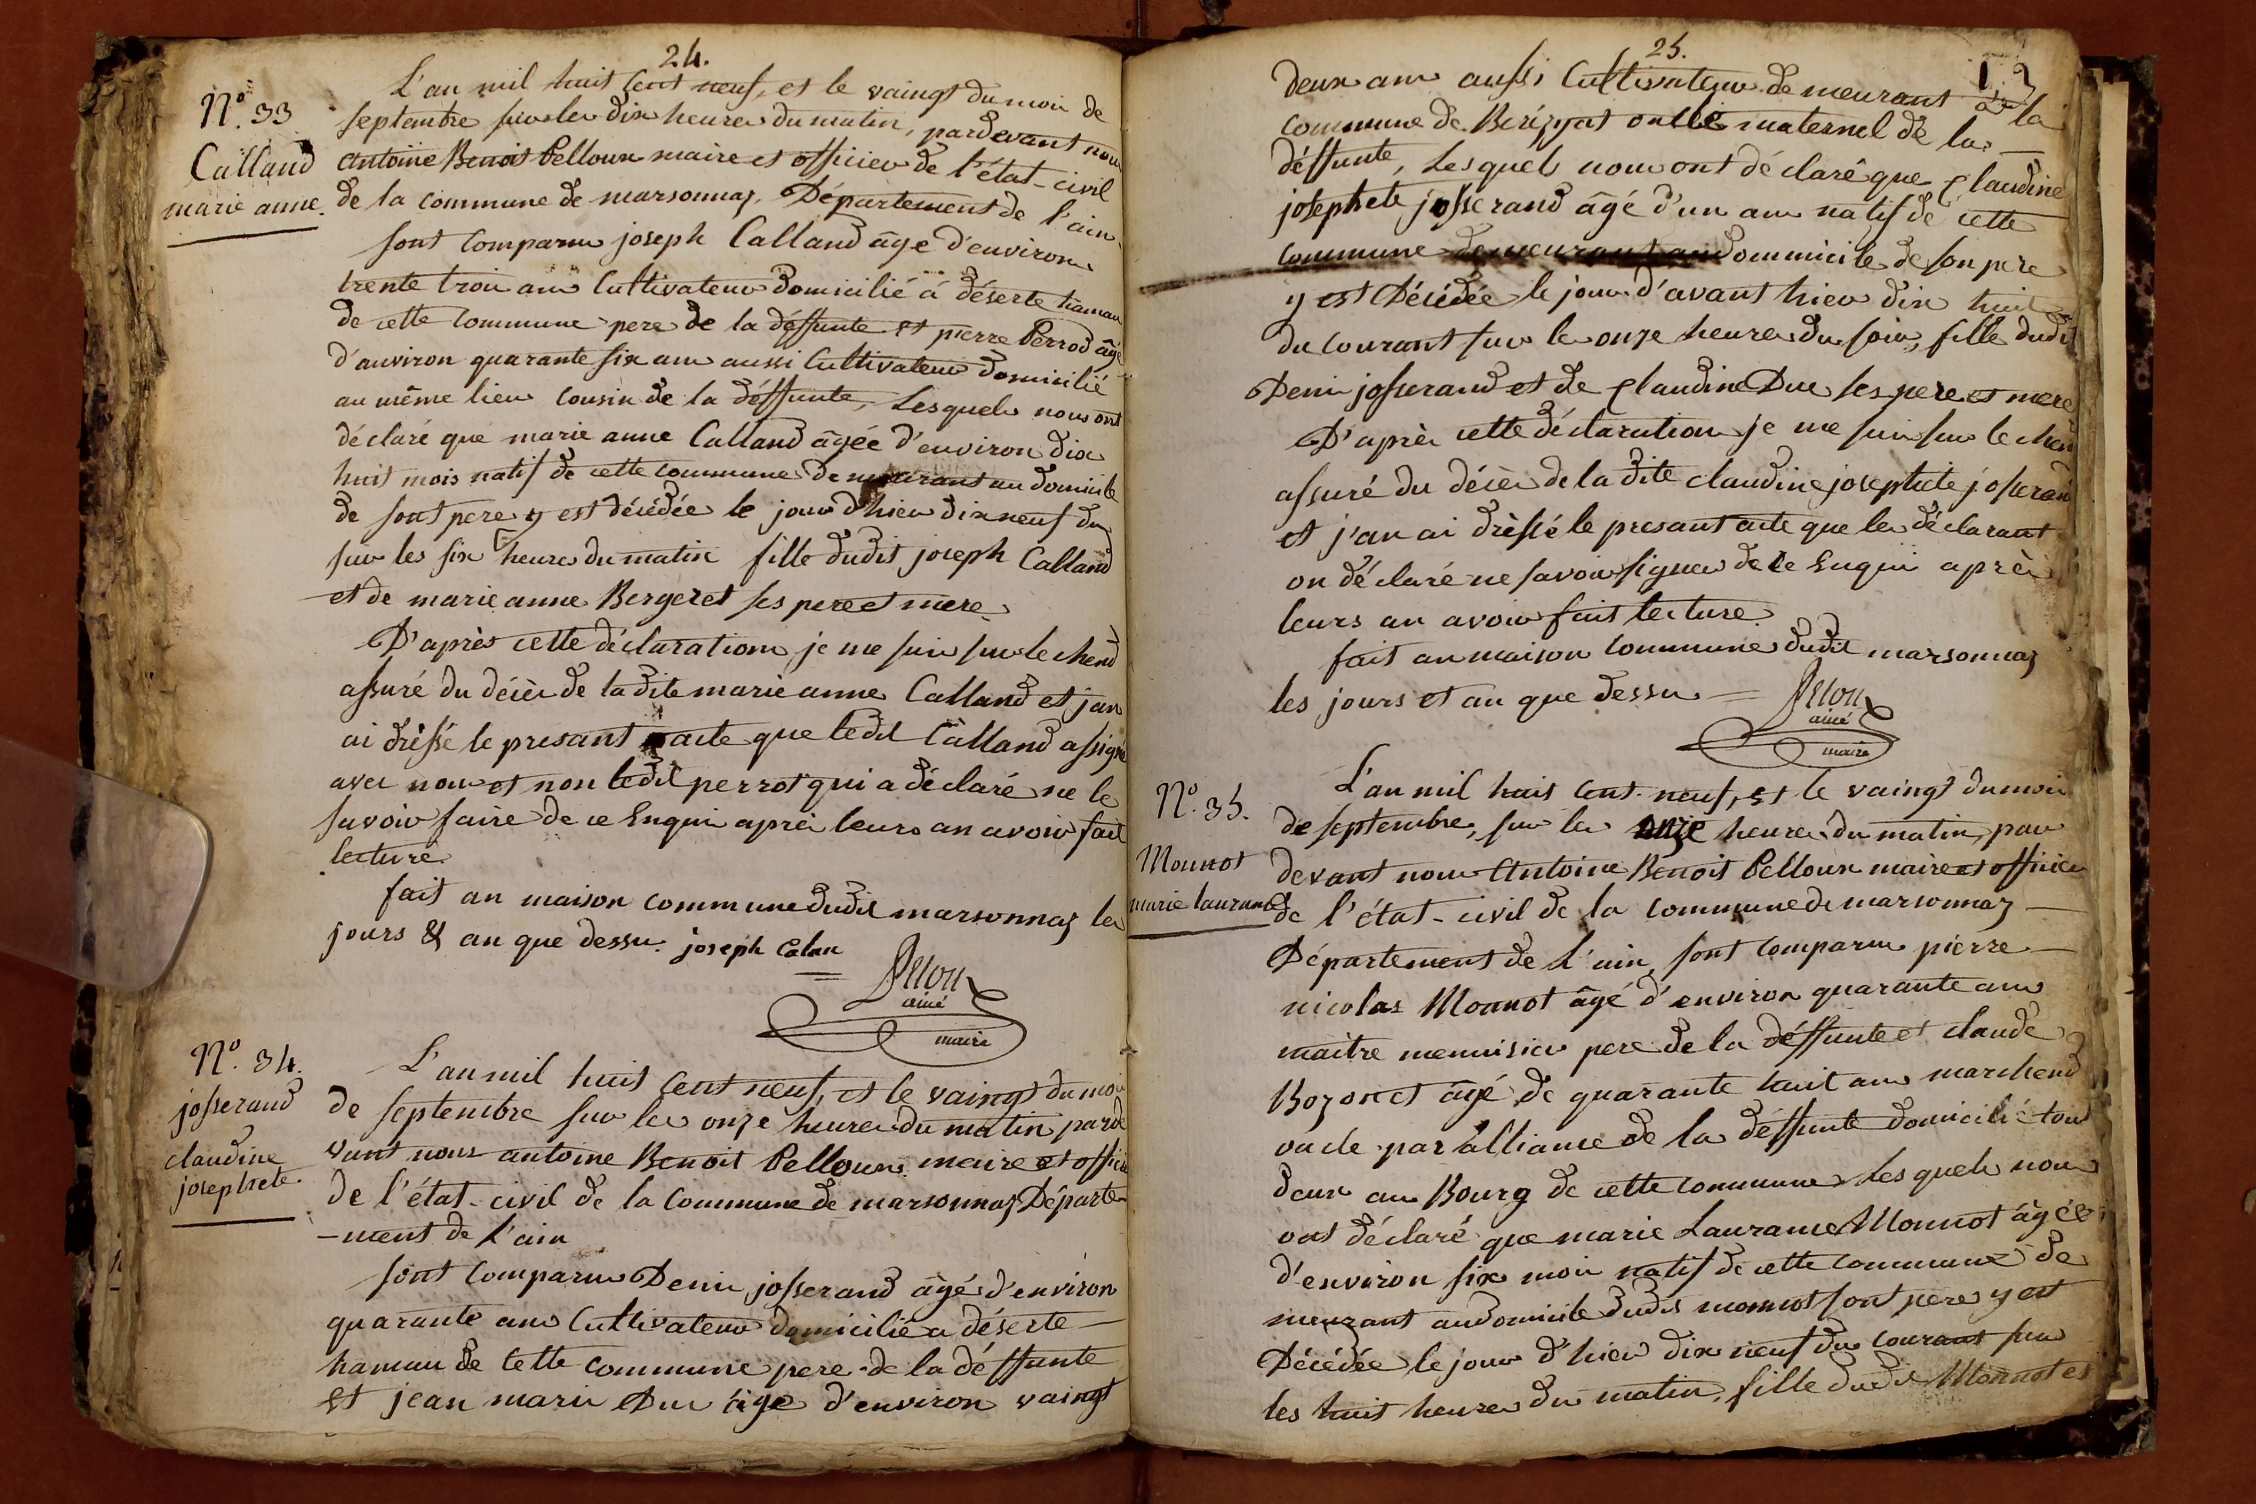 24.
N.o 33
Calland
marie anne.
L'an mil huit Cent neuf, et le vaingt du moi de
septembre sur les dix heures du matin, pardevant nous
antoine Benoit Pelloux maire et officier de l'état-civil
de la commune de marsonnaz, Département de l'ain.
sont comparus joseph Calland âgé d'environ
trente trois ans Cultivateur domicilié á déserte hamau
de cette commune pere de la déffunte et pierre Perrod âgé
d'anviron quarante six ans aussi Cultivateur domicilié
au même lieu cousin de la déffunte, Lesquels nous ont
déclaré que marie anne Calland âgée d'environ dix
huit mois natif de cette commune demeurant au domicile
de sont pere y est décédée le jour d'hier dix neuf du
sur les six heures du matin fille dudit joseph Calland
et de marie anne Bergeret ses pere et mere
D'après cette déclaration je me suis sur le chend
assuré du décès de ladite marie anne Calland et j'an
ai drèssé le presant acte que ledit Calland a signé
avec nous et non ledit perrot qui a déclaré ne le
savoir faire de ce Enquis après leurs an avoir fait
lecture.
fait an maison commune dudit marsonnaz les
jours & an que dessu. joseph Calan
Pelou
ainé
maire
N.o 34.
josserand
claudine
josephete.
L'an mil huit Cent neuf, et le vaingt du moi
de septembre sur les onze heures du matin parde
vant nous antoine Benoit Pelloux maire et officie
de l'état-civil de la Commune de marsonnaz Départe
-ment de l'ain
sont comparus Denis josserand âgé d'environ
quarante ans Cultivateur domicilié a déserte
hamau de cette commune pere de la déffunte
et jean marie Duc âge d'environ vaingt
25.
deux ans aussi Cultivateur demeurant à la
commune de Beréziat oncle maternel de la
déffunte, Lesquels nous ont déclaré que Claudine
josephete josserand âgé d'un ans natif de cette
commune demeurant au dommicile de son pere
y est Décédée le jour d'avant hier dix huit
du courant sur les onze heures du soir, fille dudit
Denis josserand et de Claudine Duc ses pere et mere
D'après cette déclaration je me suis sur le chen
assuré du décès de la dite claudine josephete josserand
et j'an ai drèssé le presant acte que les déclarant
on déclaré ne savoir signer de ce Enquis après
leurs an avoir fait lecture.
fait an maison commune dudit marsonnaz
les jours et an que dessu
Pelou
ainé
maire
N.o 35.
Monnot
marie laurance
L'an mil huit Cent neuf, et le vaingt du moi
de septembre, sur les onze heures du matin, par
devant nous Antoine Benoit Pelloux maire et officier
de l'état-civil de la commune de marsonnaz
Département de l'ain, sont comparus pierre
nicolas Monnot âgé d'environ quarante ans
maitre menuisier pere de la déffunte et claude
Bozonet âgé de quarante huit ans marchend
oncle par alliance de la déffunte domicilié tou
deux au Bourg de cette commune Lesquels nous
ont déclaré que marie Laurance Monnot âgée
d'environ six mois natif de cette commune de
meurant au domicile dudit monnot sont pere y est
Décédée le jour d'hier dix neuf du courant sur
les huit heures du matin, fille dudit Monnot et